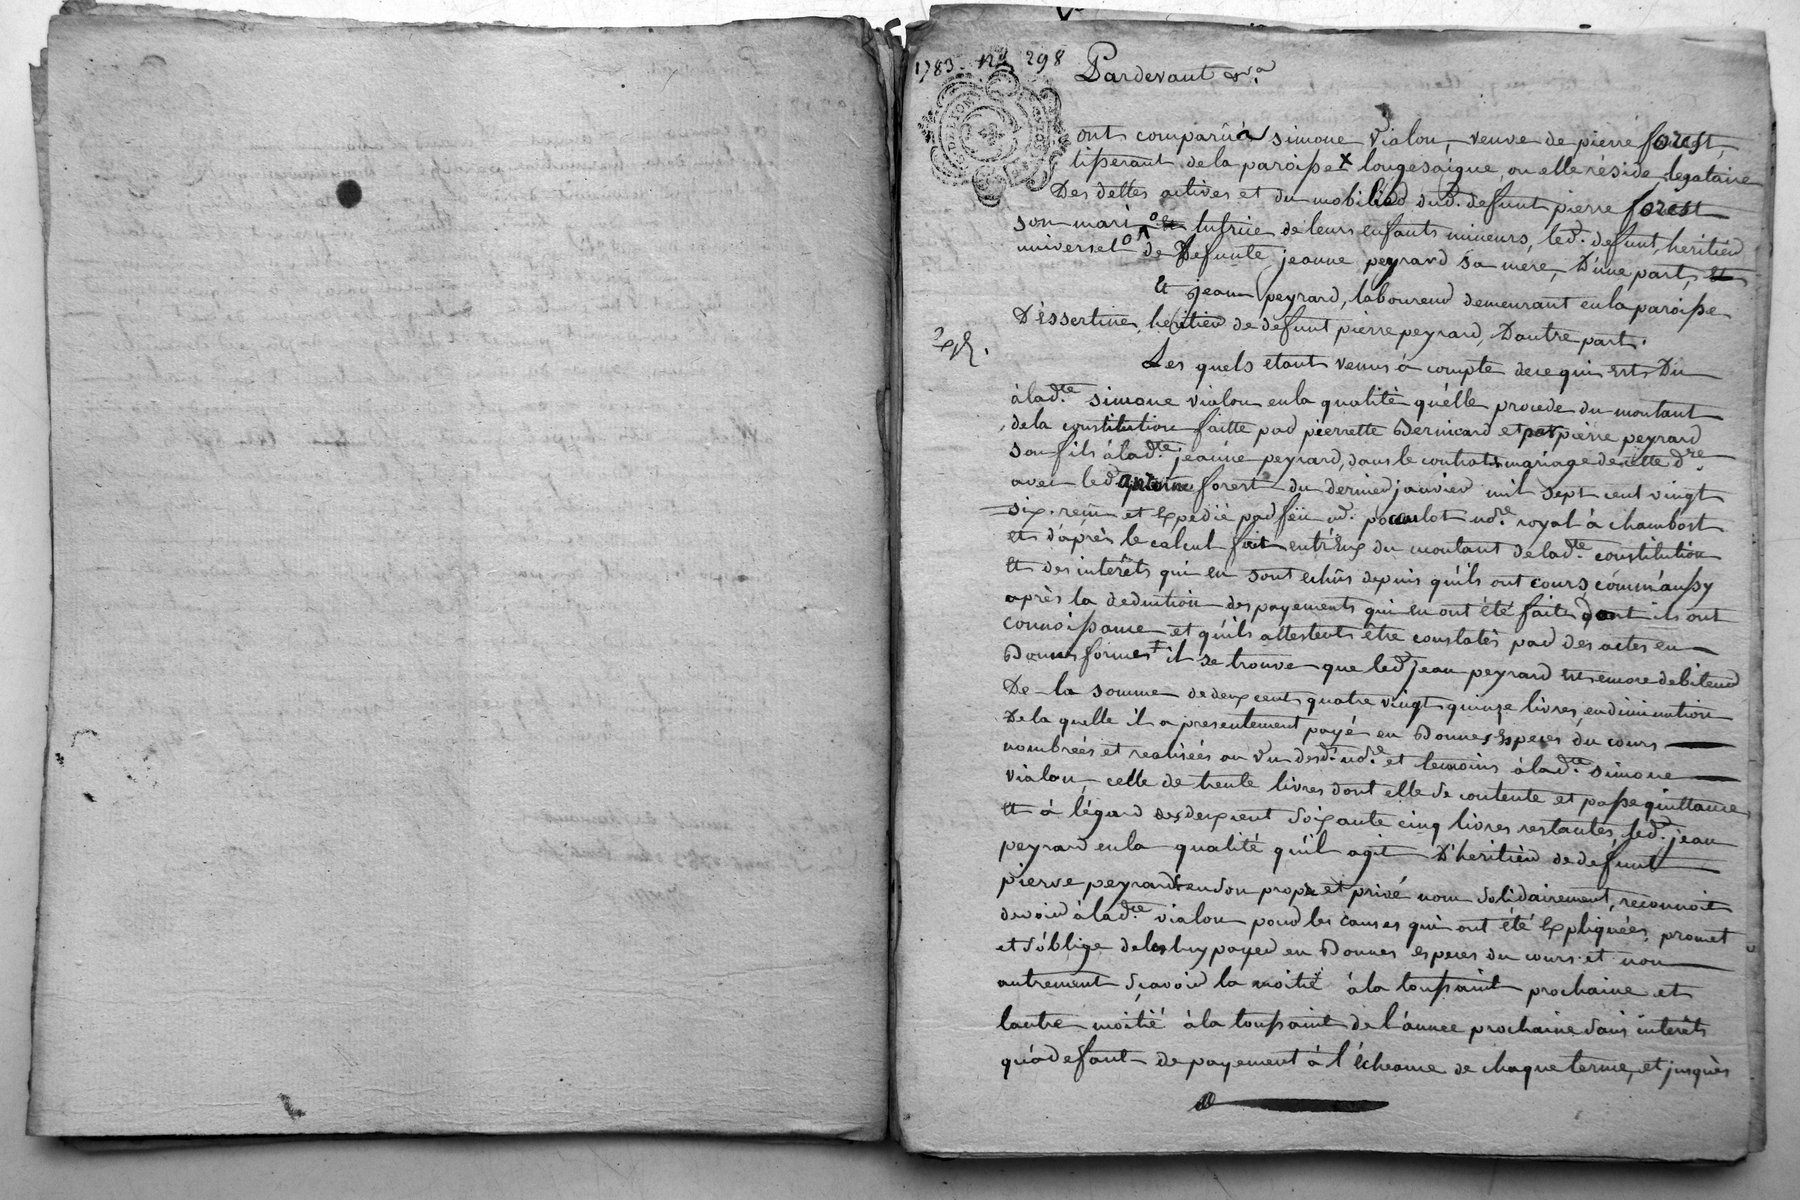 1783. 298
Pardevant &ca
ont comparû simone vialon, veuve de pierre forest,
tisserant de la paroisse longesaigne, ou elle réside, legataire
Des dettes actives et du mobilier dud. defunt pierre forest
son mari tutrice de leurs enfants mineurs, led. defunt, heritier
universel de Defunte jeanne peyrard sa mere, D'une part,
Et jean peyrard, laboureur demeurant en la paroisse
D'essertine, heritier de defunt pierre peyrard, D'autre part.
Exp.
Les quels etant venus à compte de ce qui est Du
à lad.te simone vialon en la qualité qu'elle procede du montant
de la constitution faitte par pierrette Bernicard et par pierre peyrard
son fils à lad.te jeanne peyrard, dans le contrat mariage de cette d.re
avec led. forest du dernier janvier mil sept cent vingt
six. reçu et Expedié par feu m.d poculot nd.re royal à chambost
et d'après le calcul fait entr'Eux du montant de lad.te constitution
Et des interêts qui en sont echûs depuis qu'ils ont cours, comm'aussy
après la deduction des payements qui en ont été faits dont ils ont
connoissance et qu'ils attestent être constatés par des actes en
Bonnes formes il se trouve que led. jean peyrard est encore debiteur
De la somme de deux cent quatre vingt quinze livres, en diminution
De la quelle il a presentement payé en Bonnes Especes du cours
nombreés et realisées au vu desd. nd.re et temoins à lad.te simone
vialon, celle de trente livres dont elle se contente et passe quittance
Et à légard des deux cent soixante cinq livres restantes, led. jean
peyrard en la qualité qu'il agit D'heritier de defunt
pierre peyrard et en son propre et privé nom solidairement, reconnoit
devoir à lad.te vialon pour les causes qui ont été Expliquées, promet
et s'oblige de les luy payer en Bonnes especes du cours et non
autrement sçavoir la moitié à la toussaint prochaine et
lautre moitié à la toussaint de l'année prochaine sans interêts
qu'a defaut de payement à l'écheance de chaque terme, et jusquès